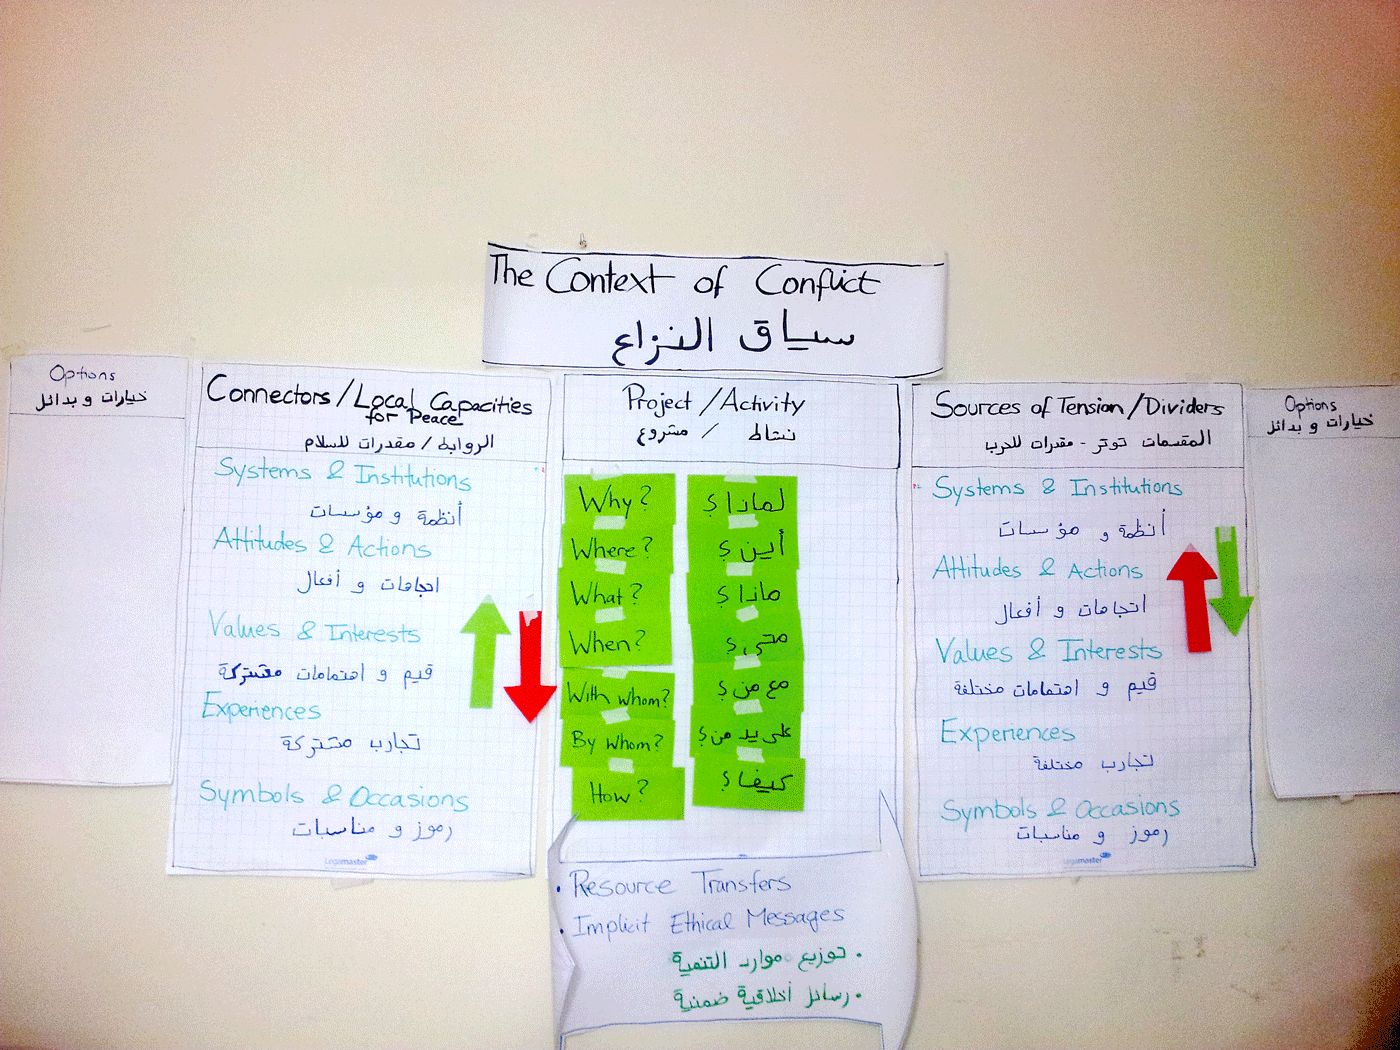 The Context of Conflict
سياق النزاع
Options
خيارات و بدائل
Connectors/Local Capacities
for Peace
الروابط / مقدرات للسلام
Systems & Institutions
أنظمة و مؤسسات
Attitudes & Actions
اتجاهات و أفعال
Values & Interests
قيم و اهتمامات مشتركة
Experiences
تجارب مشتركة
Symbols & Occasions
رموز و مناسبات
Legamaster
Project/Activity
نشاط / مشروع
Why? لماذا؟
Where? أين؟
What? ماذا؟
When? متى؟
With whom? مع من؟
By whom? على يد من؟
How? كيف؟
• Resource Transfers
• Implicit Ethical Messages
• توزيع موارد التنمية
• رسائل أخلاقية ضمنية
Sources of Tension/Dividers
المقسمات توتر - مقدرات للحرب
Systems & Institutions
أنظمة و مؤسسات
Attitudes & Actions
اتجاهات و أفعال
Values & Interests
قيم و اهتمامات مختلفة
Experiences
تجارب مختلفة
Symbols & Occasions
رموز و مناسبات
Legamaster
Options
خيارات و بدائل